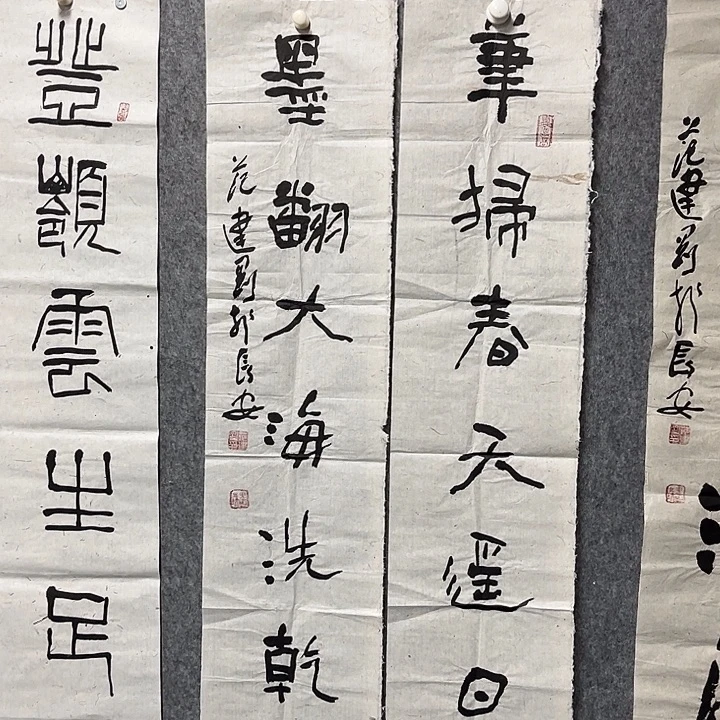 范建於長安
筆掃春天遥日
墨翻大海洗乾
范建於長安
登嶺雲生足